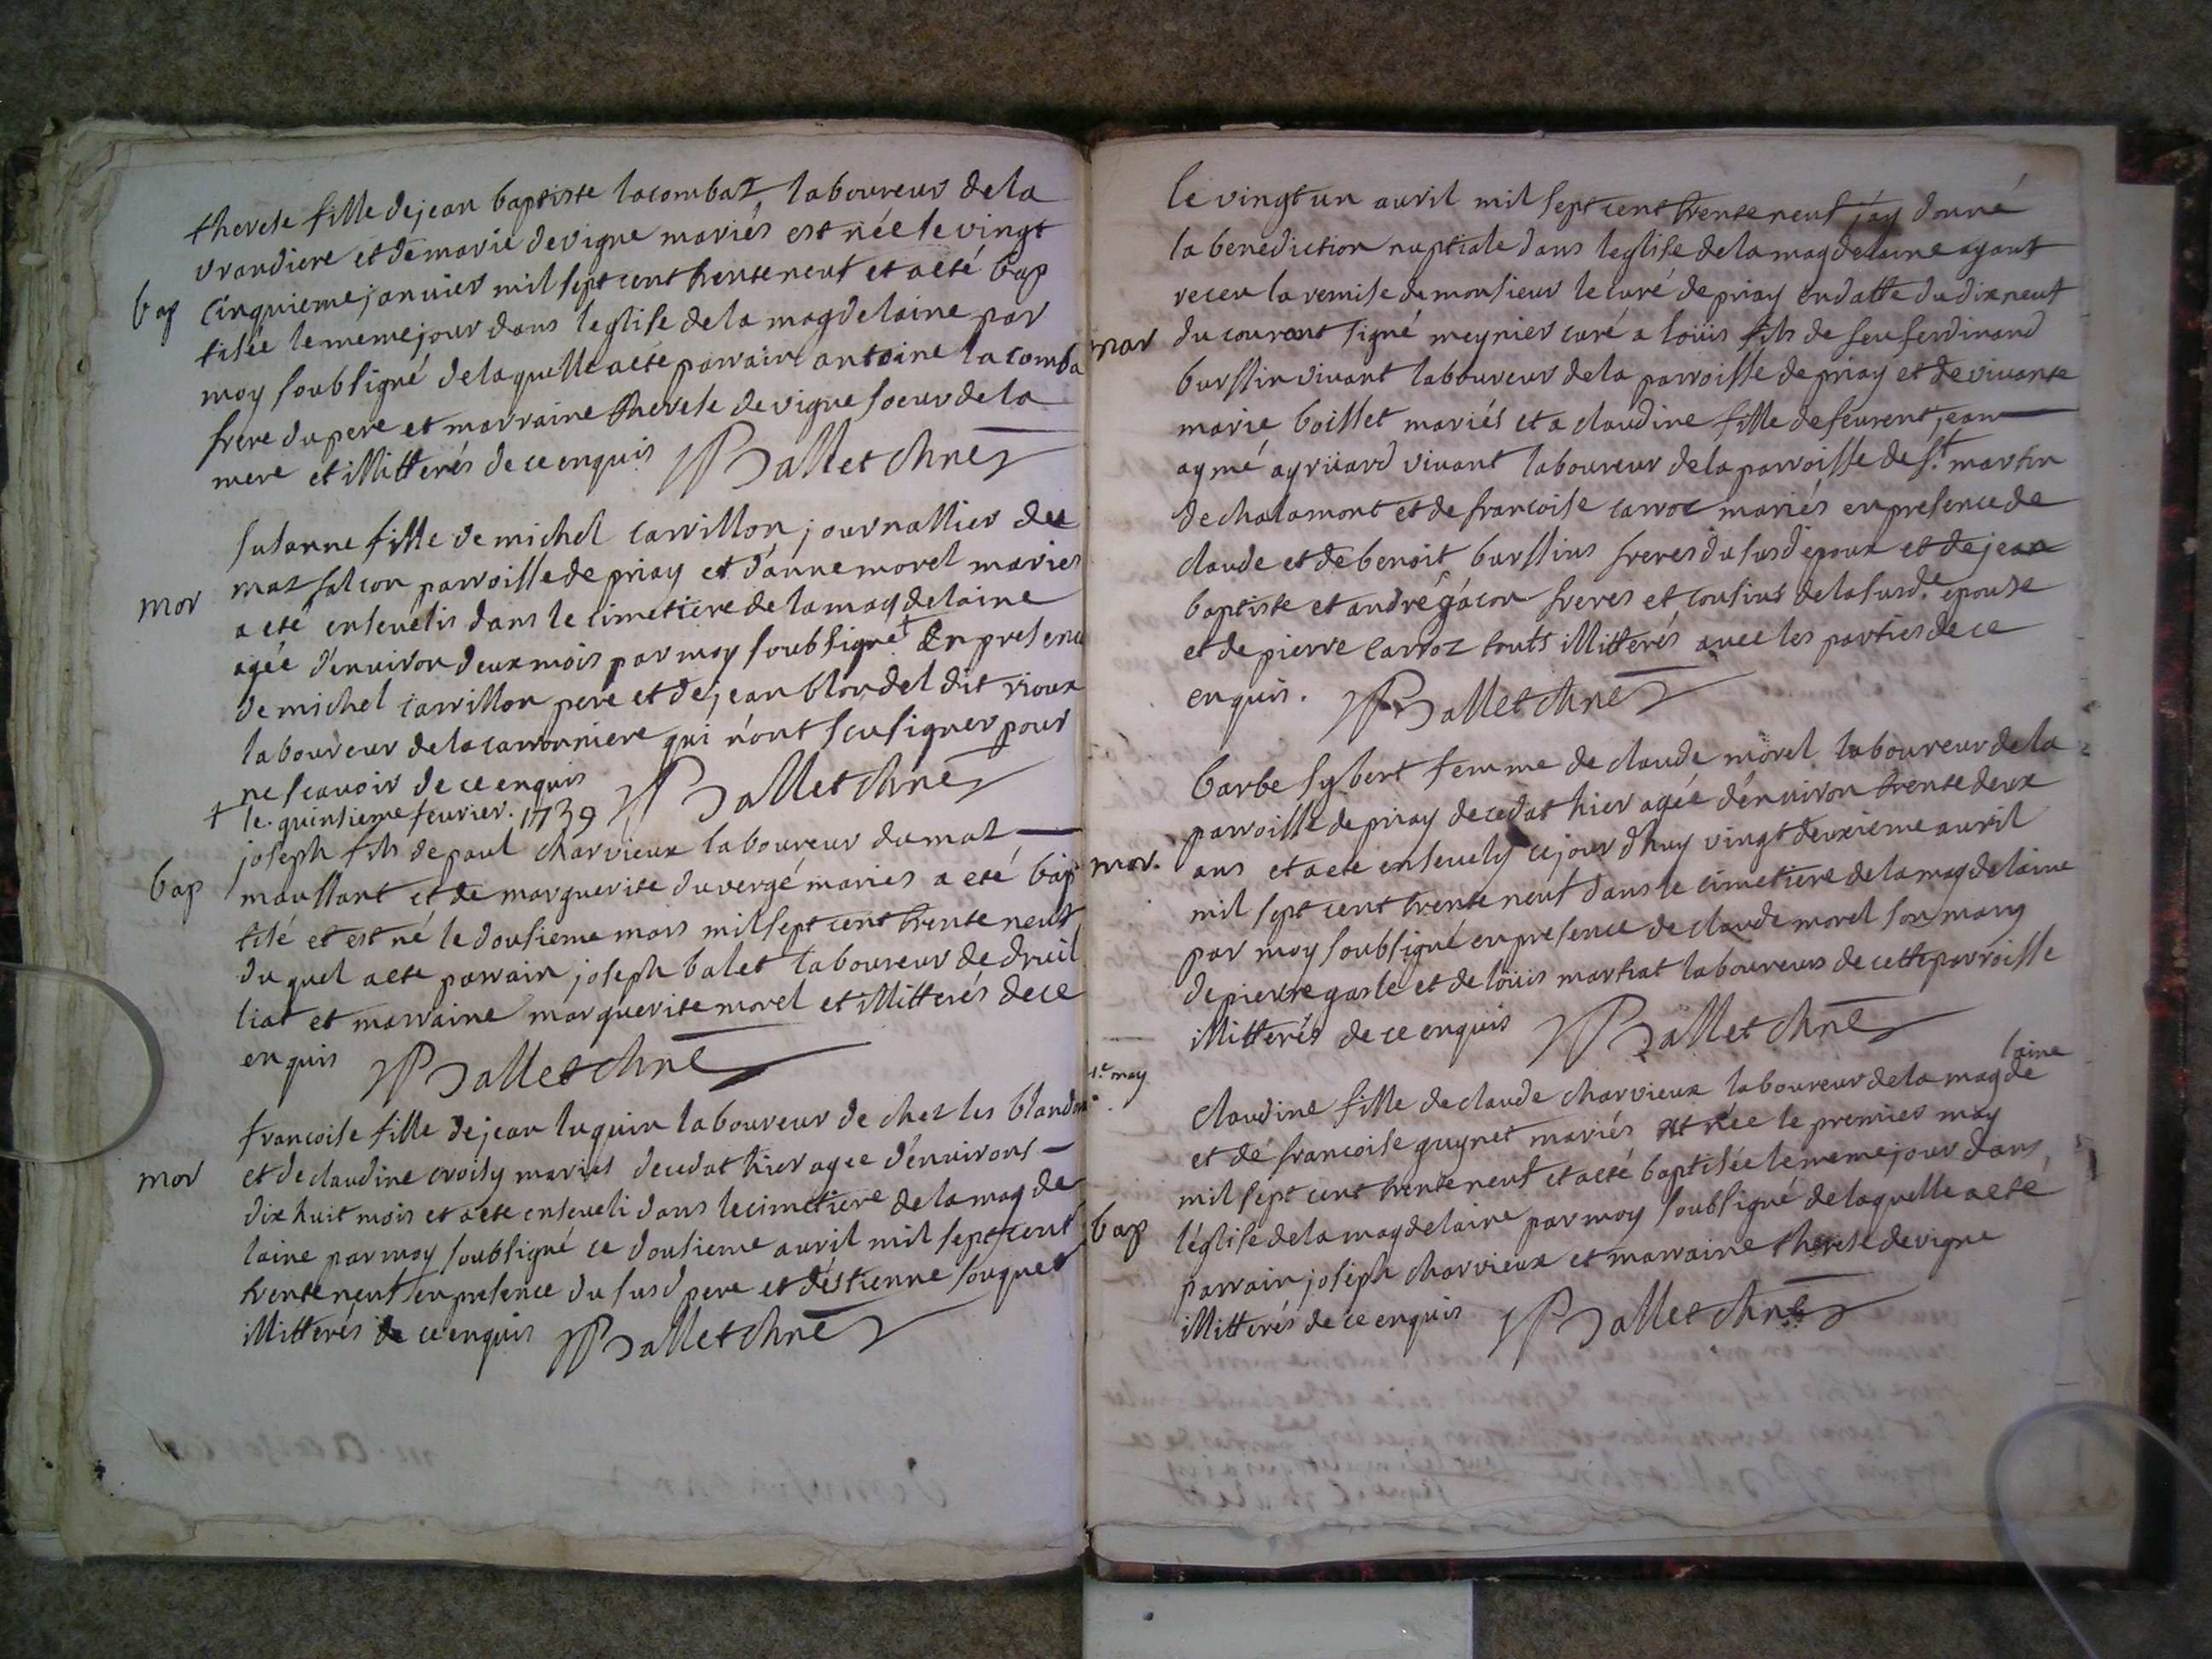 therese fille de jean baptiste lacombaz laboureur de la
vrandiere et de marie devigne mariés est née le vingt
bap cinquieme janvier mil sept cent trente neuf et a eté bap
tisée le meme jour dans l'eglise de la magdelaine par
moy soubsigné de laquelle a eté parrain antoine lacomba
frere du pere et marraine therese devigne soeur de la
mere et illitterés de ce enquis Ballet chne
susanne fille de michel carrillon journallier du
maz falcon parroisse de priay et d'anne morel mariés
mor a eté enseuelis dans le cimetiere de la magdelaine
agée d'enuiron deux mois par moy soubsigné + En presence
de michel carrillon pere et de jean blondel dit rioux
laboureur de la carronniere qui n'ont sçu signer pour
ne scauoir de ce enquis Ballet chne
+ le quinsieme feurier. 1739
joseph fils de paul charvieux laboureur du maz
bap moussant et de marguerite duvergé mariés a eté bap
tisé et est né le dousieme mars mil sept cent trente neuf
du quel a eté parrain joseph balet laboureur de druil
liat et marraine marguerite morel et illitterés de ce
enquis Ballet chne
francoise fille de jean luquin laboureur de chez les blandon
mor et de claudine croisy mariés decedat hier agee d'enuirons
dix huit mois et a eté enseueli dans le cimetiere de la magde
laine par moy soubsigné ce dousieme auril mil sept cent
trente neuf en presence du susd pere et d'estienne fouquet
illitterés de ce enquis Ballet chne
le vingt un auril mil sept cent trente neuf j'ay donné
la benediction nuptiale dans leglise de la magdelaine ayant
receu la remise de monsieur le curé de priay en datte du dix neuf
mar du courant signé meynier curé a loüis fils de feu ferdinand
burssin viuant laboureur de la parroisse de priay et de viuante
marie boisset mariés et a claudine fille de feurent jean
aymé ayriuard viuant laboureur de la parroisse de st martin
de chalamont et de francoise carroz mariés en presence de
claude et de benoit burssins freres du susd epoux et de jean
baptiste et andré gacon freres et cousins de la susde epouse
et de pierre carroz touts illitterés auec les parties de ce
enquis. Ballet chne
barbe sybert femme de claude morel laboureur de la
parroisse de priay decedat hier agée d'enuiron trente deux
mor. ans et a eté enseuely ce jour d'huy vingt deuxieme auril
mil sept cent trente neuf dans le cimetiere de la magdelaine
par moy soubsigné en presence de claude morel son mary
de pierre garle et de loüis martrat laboureurs de cette parroisse
illitterés de ce enquis Ballet chne
1e may
claudine fille de claude charvieux laboureur de la magdelaine
et de francoise guynet mariés est née le premier may
mil sept cent trente neuf et a eté baptisée le meme jour dans
bap l'église de la magdelaine par moy soubsigné de laquelle a eté
parrain joseph charvieux et marraine therese devigne
illitterés de ce enquis Ballet chne